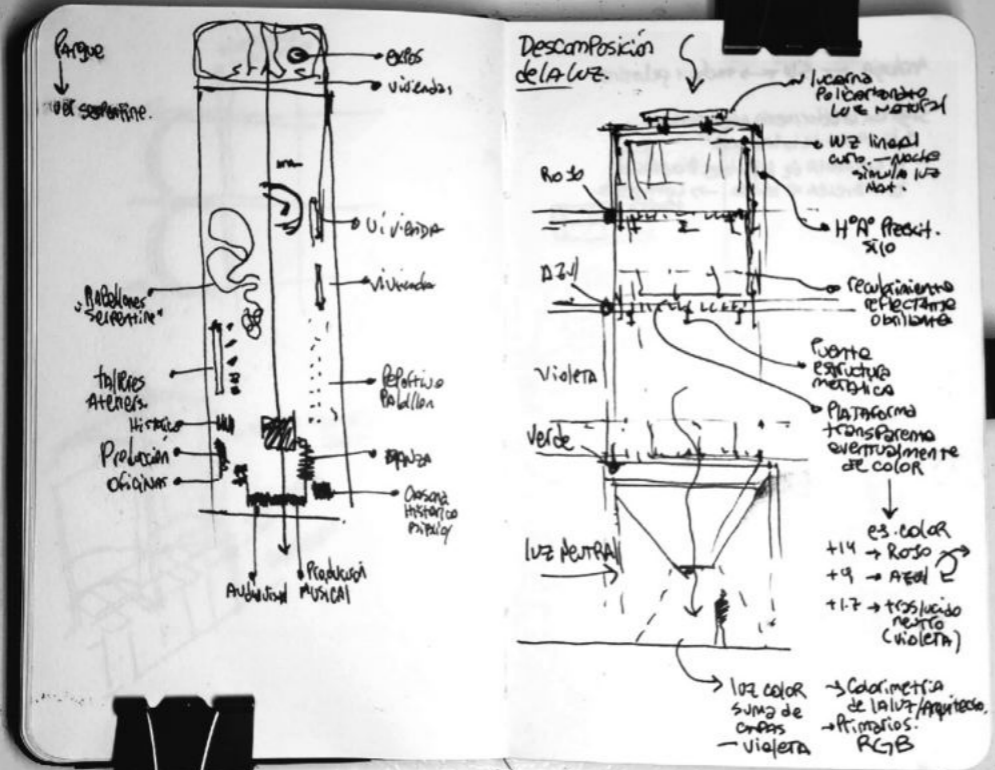 Parque
ver serpentine.
expos
viviendas
vivienda
viviendas
Pabellones
"Serpentine"
talleres
Ateliers.
Historico
Producción
oficinas
Deportivo
Pabellon
DANZA
Historico
Audiovisual
Producción
MUSICAL
Descomposición
de la luz.
lucerna
Policarbonato
luz natural
luz lineal
noche
simula luz
nat.
Rojo
HºAº
silo
Azul
recubrimiento
reflectante
o brillante
Puente
estructura
metalica
Violeta
PLATAFORMA
transparente
eventualmente
de color
Verde
es. color
+14 → Rojo
+9 → Azul
+1.7 → traslucido
neutro
(violeta)
luz Neutral
luz color
suma de
capas
— violeta
→ Colorimetria
de la luz/
→ Primarios.
RGB